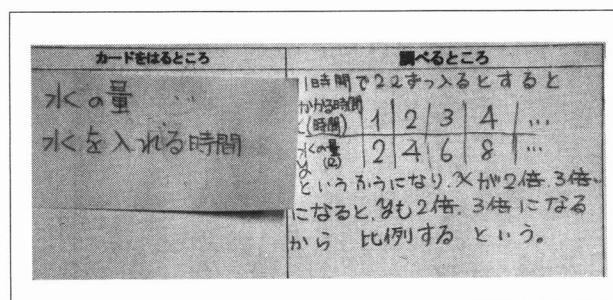 カードをはるところ
水の量 …
水を入れる時間
調べるところ
1時間で2ℓずつ入るとすると
かかる時間
x(時間) 1 2 3 4 …
水の量
y (ℓ) 2 4 6 8 …
というふうになり、xが2倍、3倍、
になると、yも2倍、3倍になる
から 比例する という。